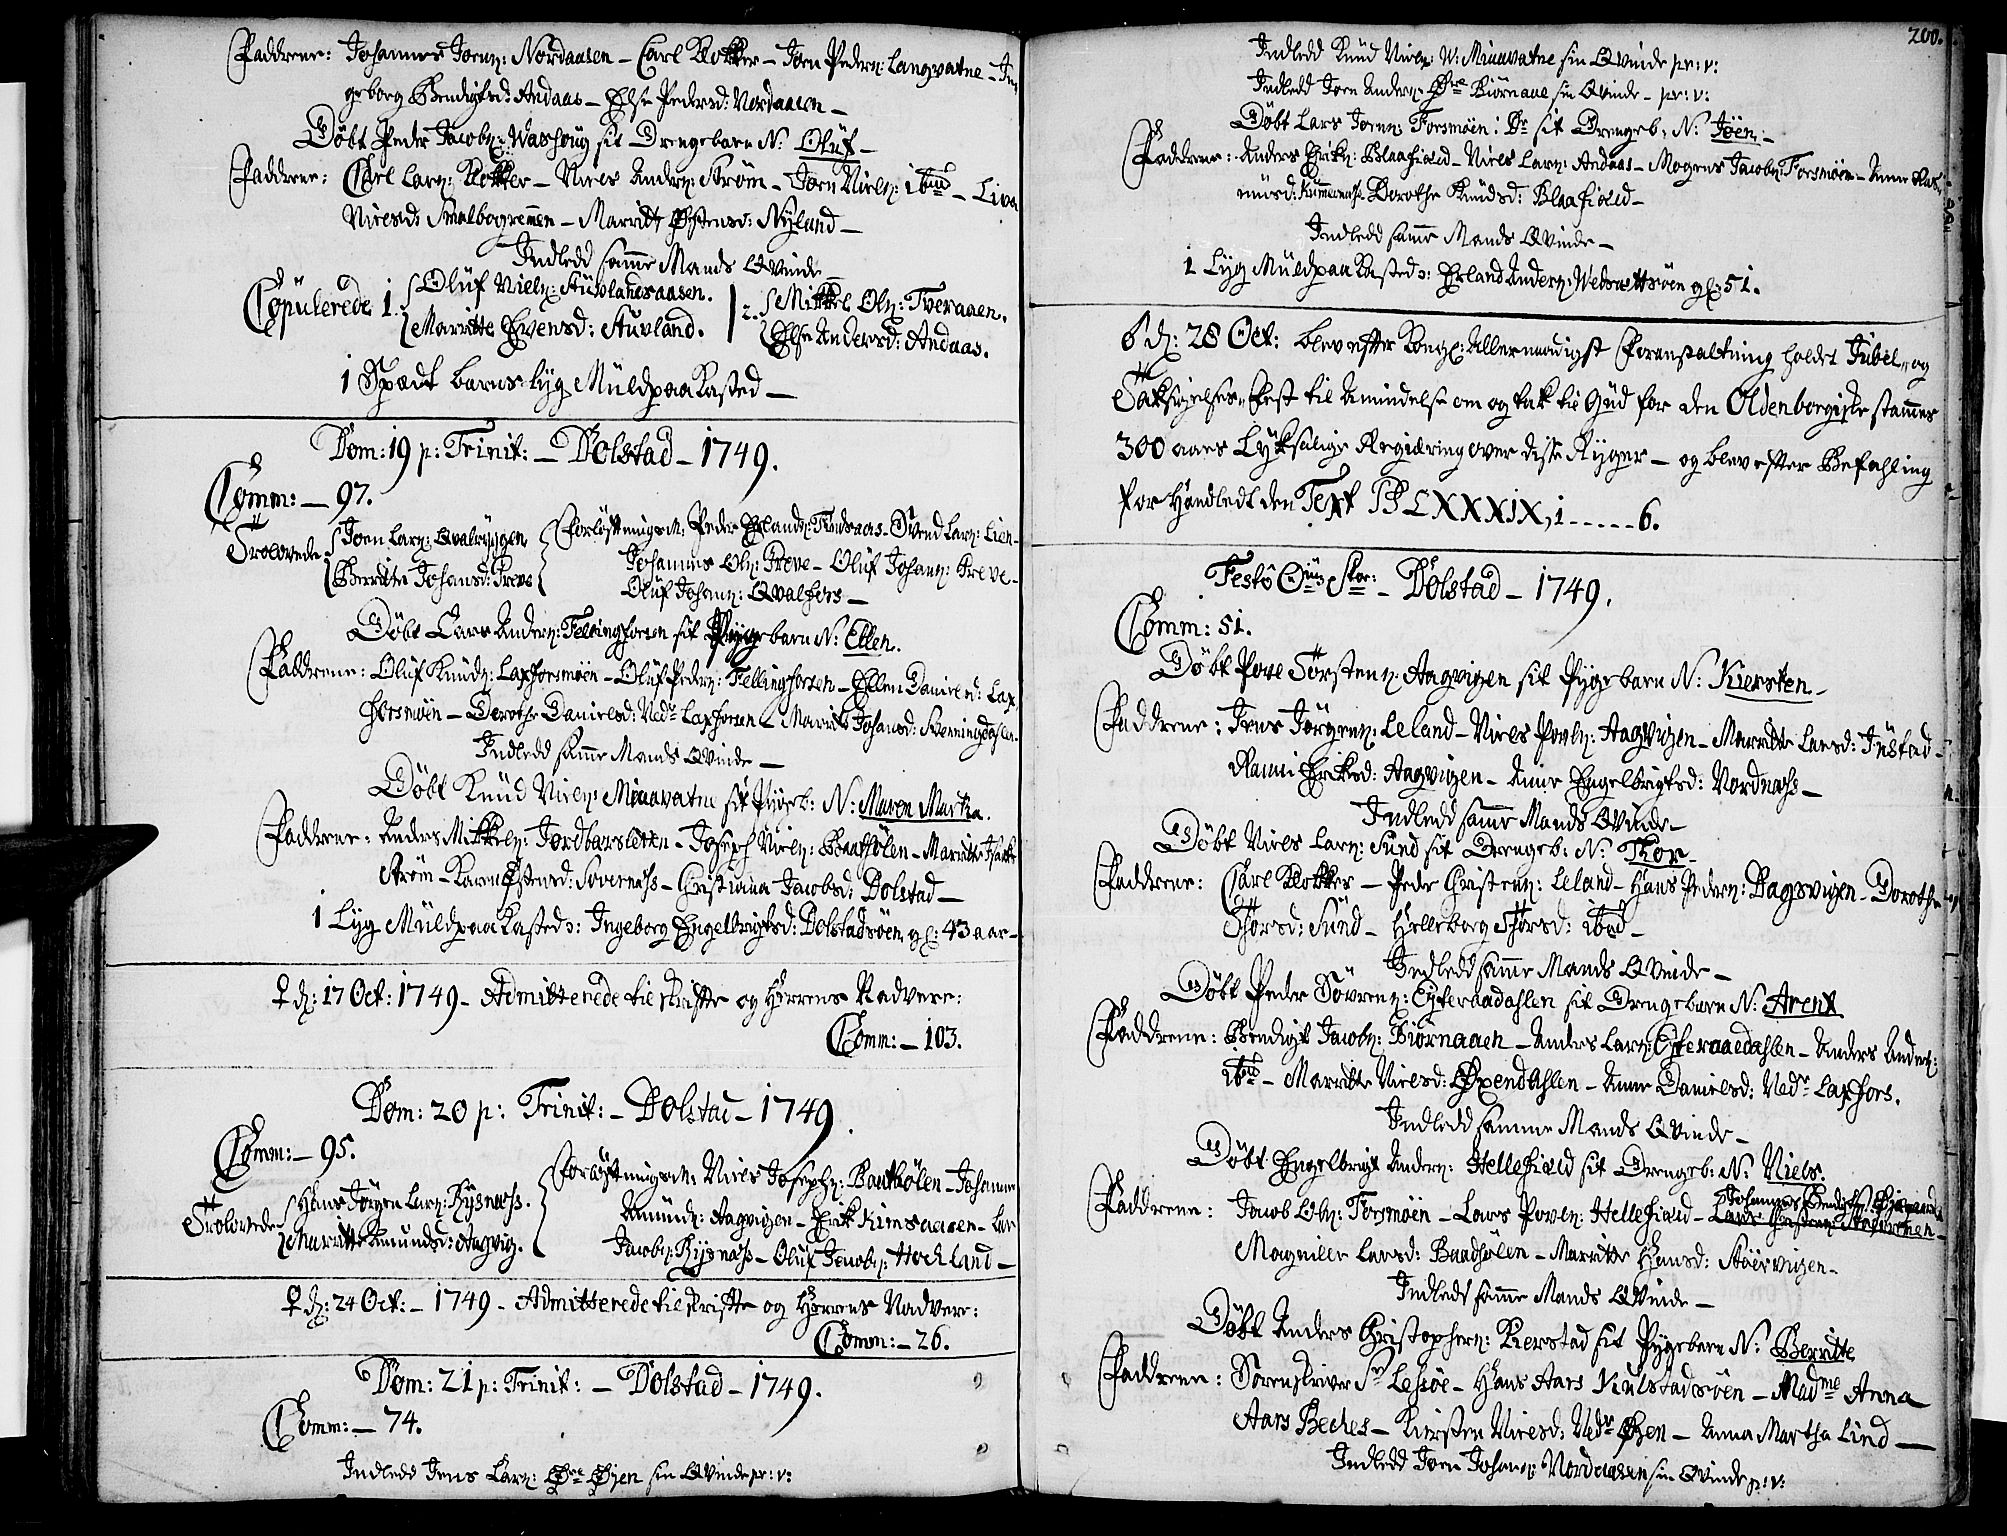 Faddrene: Johannes Joenß: Nordaasen – Carl Klokker – Joen Pederß: Langvatne – In
geborg Bendigtsd: Andaas – Else Pedersd: Nordaasen –
Döbt Peder Jacobß: Washoug sit Drengebarn N: Oluf –
Faddrene: Carl Larß: Klokker – Niels Anderß: Ström – Joen Nielß: ibid – Liva
Nielsd: Smalbogremmen – Marritte Østensd: Nyland –
Indledd samme Mands Qvinde –
Copulerede 1. Oluf Nielß: Stuvlandsaasen. 2. Mikkel Olß: Tveraaen.
Marritte Evensd: Stuvland. Else Andersd: Andaas.
1 Spædt barns liig Muldpaakasted –
Dom: 19 p: Trinit: – Dolstad – 1749.
Comm: – 97.
Trolovede Joen Larß: Qvalryggen Forlöftningsm: Peder Erlandß: Findsaas – Svend Larß: Lien –
Berritte Johansd: Greve Johannes Olß: Greve – Oluf Johanß: Greve –
Oluf Johanß: Qvalfors –
Döbt Lars Anderß: Fellingforsen sit Pygebarn N: Ellen.
Faddrene: Oluf Knudß: Laxforsmöen – Oluf Pederß: Fellingforsen – Ellen Danielsd: Lax
forsmöen – Dorothe Danielsd: Nedr Laxforsen – Marritte Johansd: Svenningdahlen.
Indledd samme Mands Qvinde –
Döbt Knud Nielß: Miaavatne sit Pygeb: N: Maren Martha.
Faddrene: Anders Mikkelß: Jordbarsletten – Joseph Nielß: Baathölen – Marritte
Ström – Karen Østensd: Sovernæss – Christiana Jacobsd: Dolstad –
1 Lyg Muldpaakasted: Ingeborg Engelbrigtsd: Dolstadsöen, gl: 43 aar –
♀ d: 17 Oct: 1749 – Admitterede til skrifte og Herrens Nadvere:
Comm: – 103.
Dom: 20 p: Trinit: – Dolstad – 1749.
Comm: – 95.
Trolovede Hans Jörgen Larß: Rysnæss. Forlöftningsm: Niels Josephß: Baathölen – Johannes
Marritte Amundsd: Aagvig. Amundß: Aagvigen – Erik Kimsaasen – Lars
Jacobß: Rysnæss – Oluf Jacobß: Hochland –
♀ d: 24 Oct: – 1749 – Admitterede til skrifte og Herrens Nadvere:
Comm: – 26.
Dom: 21 p: Trinit: – Dolstad – 1749.
Comm: – 74.
Indledd Jens Larß: Øre Øjen sin Qvinde pr: v:
200.
Indledd Knud Nielß: N: Miaavatne sin Qvinde pr: v:
Indledd Joen Anderß: Øre Biörnaae sin Qvinde – pr: v:
Döbt Lars Joenß: Forsmöen: sit Drengeb: N: Joen –
Faddrene: Anders Erikß: Blaafield – Niels Larß: Andaas – Mogens Jacobß: Forsmöen – Anne Ras
musd: Dorothe Knudsd: Blaafield –
Indledd samme Mands Qvinde –
1 Lyg Muldpaakasted: Erland Anderß: gl: 51.
d: 28 Oct: blev efter Kongl: Allernaadigst Foranstaltning holdt Jubel- og
Taksigelses-Fest til Amindelse om og tak til Gud for den Oldenborgiske stammes
300 aars Lyksalige Regiæring over disse Ryger – og blev efter Befahling
forhandledt den Text Ps LXXXIX, 1 ----- 6.
Festô Oium Storum – Dolstad – 1749.
Comm: 51.
Döbt Pove Törstenß: Aagvigen sit Pygebarn N: Kiersten –
Faddrene: Jens Jörgenß: Leland – Niels Povelß: Aagvigen – Marritte Larsd: Justad –
Eriksd: Aagvigen – Anne Engelbrigtsd: Nordnæss –
Indledd samme Mands Qvinde –
Döbt Niels Larß: Sund sit Drengeb: N: Thor –
Faddrene: Carl Klokker – Peder Christenß: Leland – Hans Pederß: Dagsvigen – Dorothe
Thorsd: Sund – Helleborg Thorsd: ibid –
Indledd samme Mands Qvinde –
Döbt Peder Sövrenß: Eyteraadahlen sit Drengebarn N: Arent
Faddrene: Bendigt Jacobß: Biörnaaen – Anders Larß: Eyteraaedahlen – Anders Anderß:
ibid – Marritte Nielsd: Øxendahlen – Anne Danielsd: Nedr Laxfors.
Indledd samme Mands Qvinde –
Döbt Engelbrigt Anderß: Hellefield sit Drengeb: N: Niels.
Faddrene: Jacob Olß: Forsmöen – Lars Povelß: Hellefield – Johannes Bendigtß:
Magnille Larsd: Baadhölen – Marritte Hansd: Stöervigen –
Indledd samme Mands Qvinde –
Döbt Anders Christopherß: Kierstad sit Pygebarn N: Berritte
Faddrene: Sorenskriver Sr Lesöe – Hans Aars Kulstadsöen – Madme Anna
Aars Beches – Kirsten Nielsd: Nedr Øyen – Anna Martha Lind –
Indledd Joen Johanß: Nordaasen sin Qvinde p: v: